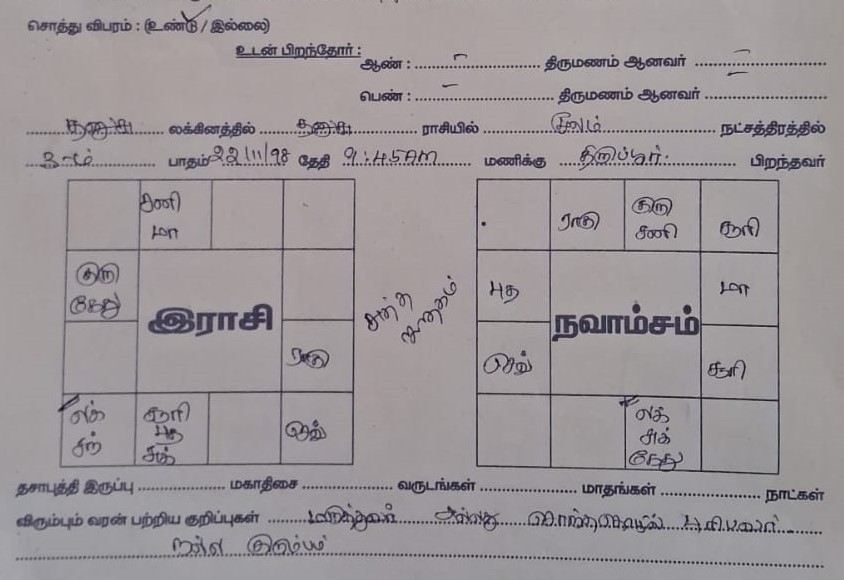 சொத்து விபரம் : (உண்டு / இல்லை)
உடன் பிறந்தோர் :
ஆண் : – திருமணம் ஆனவர் –
பெண் : – திருமணம் ஆனவர்
தனுசு லக்கினத்தில் தனுசு ராசியில் மூலம் நட்சத்திரத்தில்
2-ம் பாதம் 22/11/98 தேதி 9:45AM மணிக்கு திருப்பூர். பிறந்தவர்
சனி
மா
குரு
கேது
இராசி
ராகு
லக்
சந்
சூரி
புத
சுக்
செவ்
சுத்த
ஜாதகம்
ராகு
குரு
சனி
சூரி
புத
மா
நவாம்சம்
செவ்
லக்
சுக்
கேது
தசாபுத்தி இருப்பு மகாதிசை வருடங்கள் மாதங்கள் நாட்கள்
விரும்பும் வரன் பற்றிய குறிப்புகள் மருத்துவர் அல்லது சொந்ததொழில் புரிபவர்
நல்ல குடும்பம்